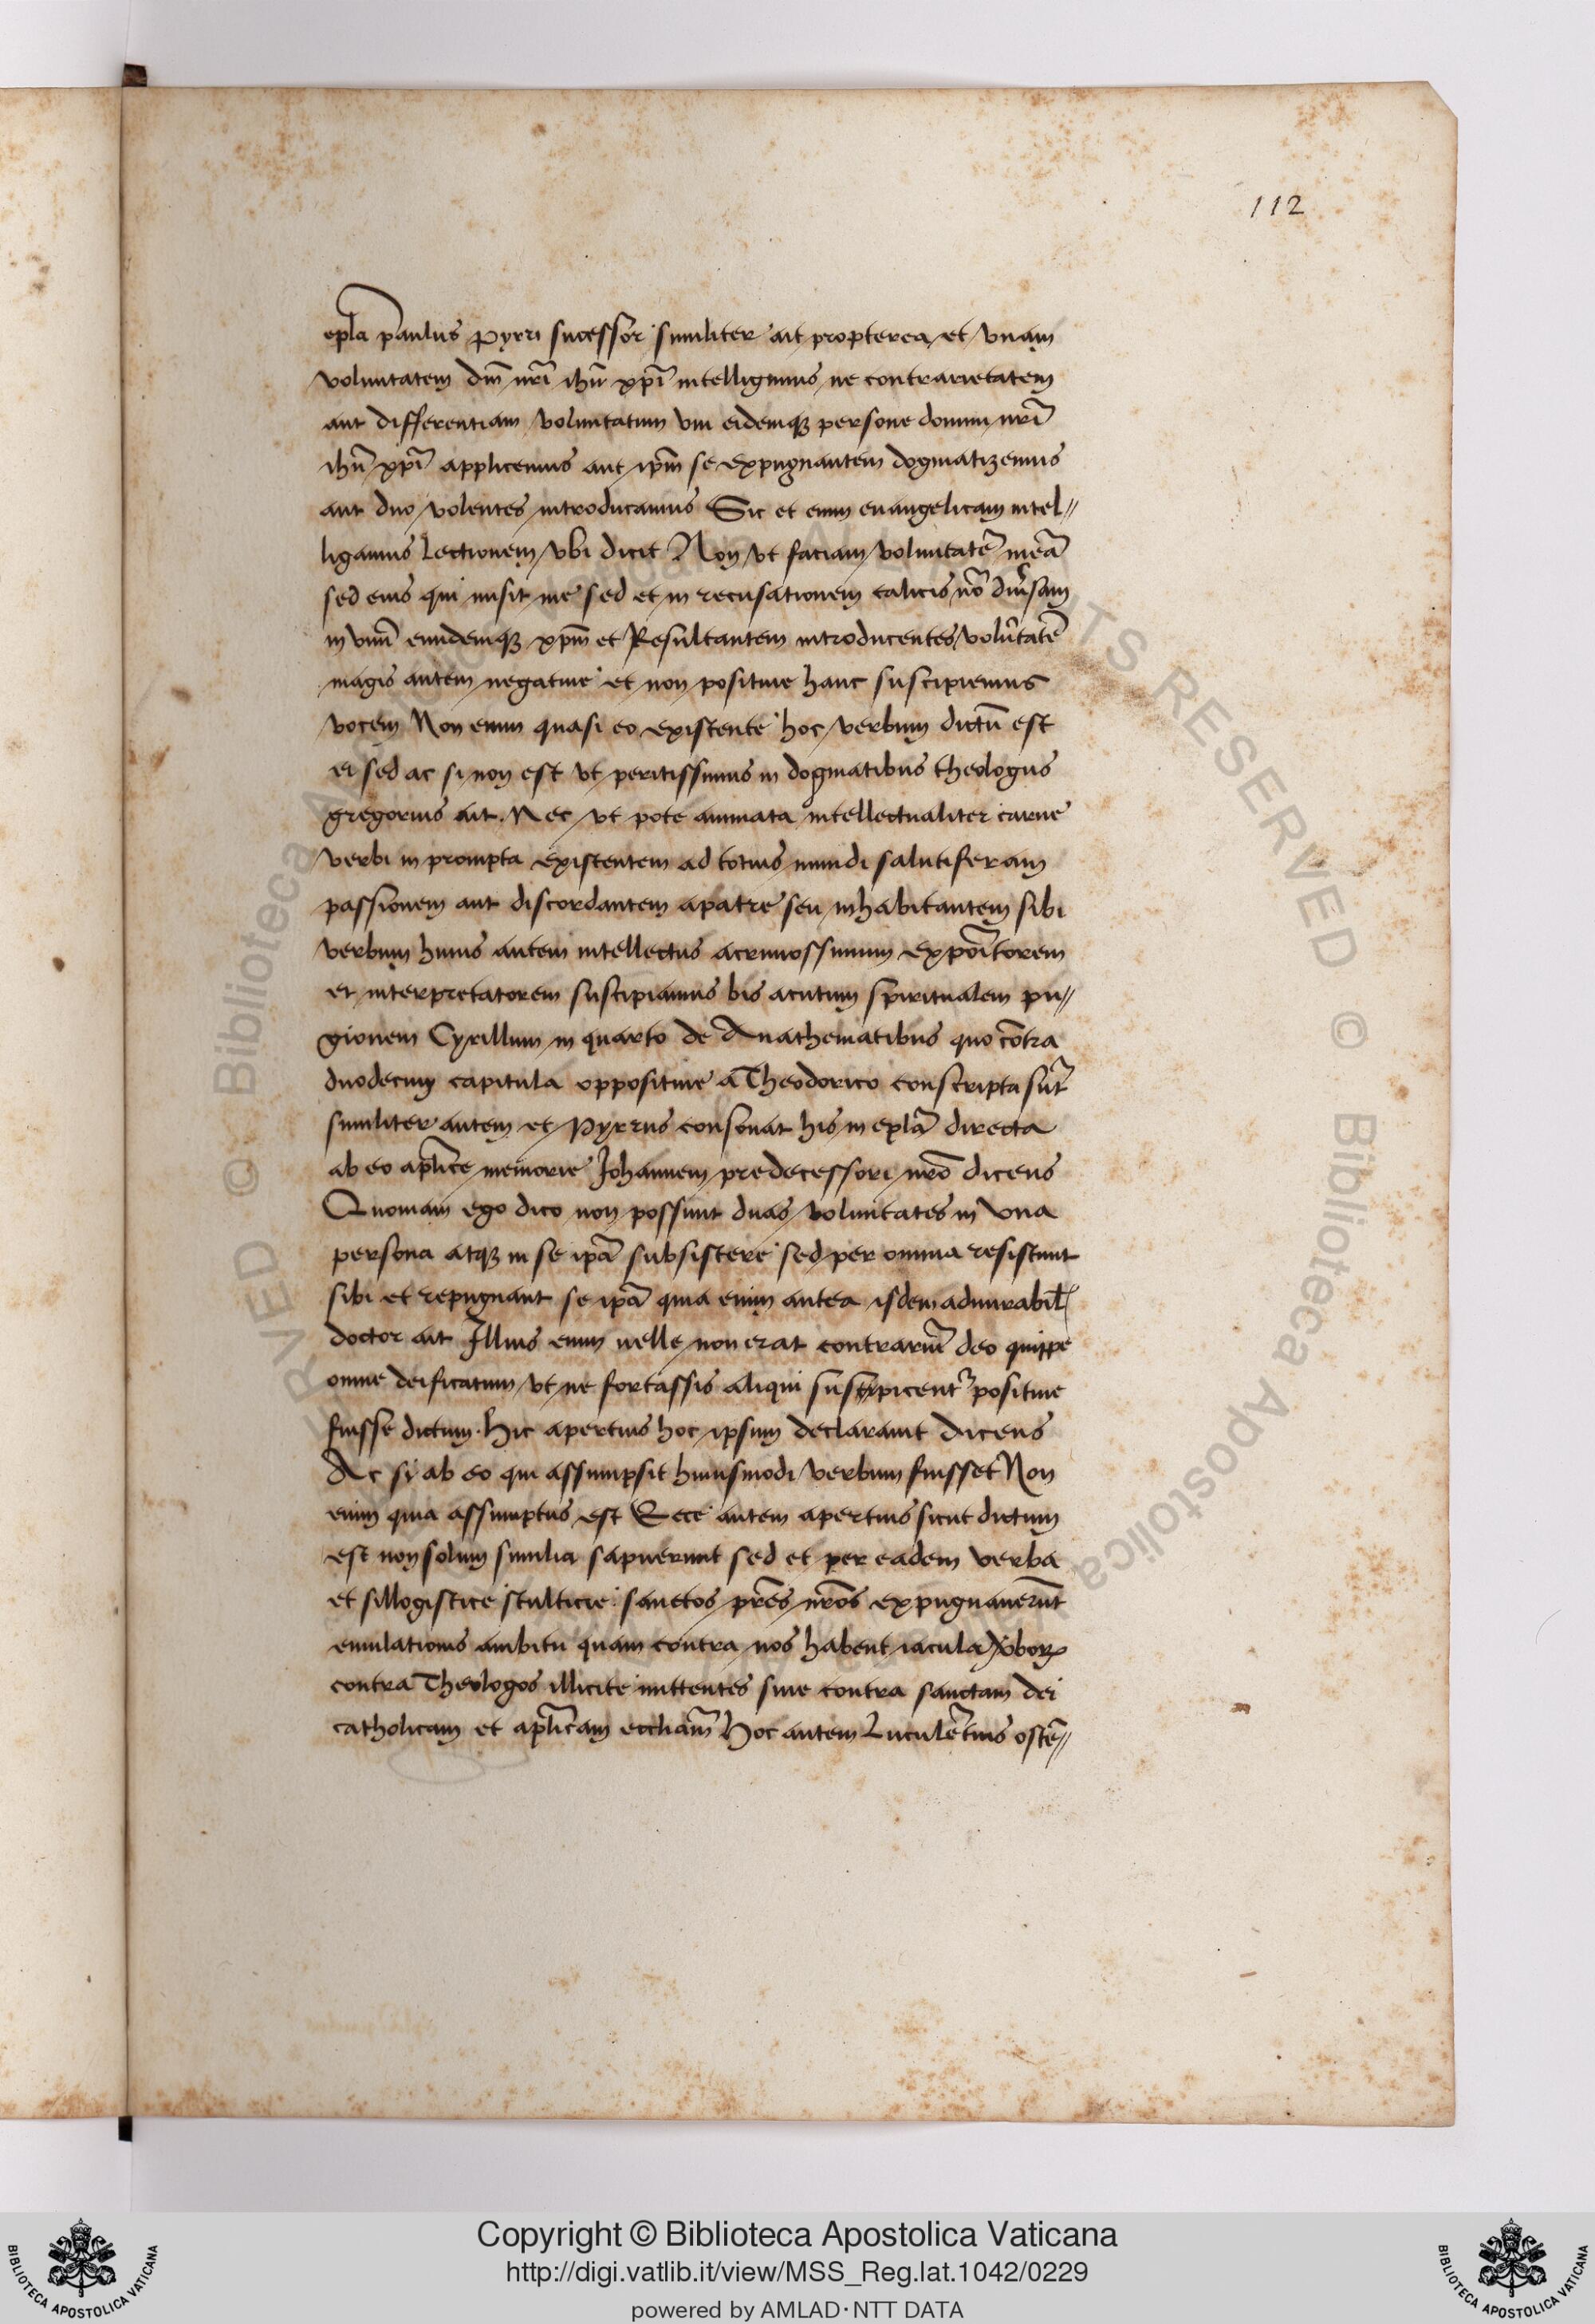 112
epl̄a paulus pyrri successor similiter ait propterea et vnam
voluntatem dm̄ nr̄i ihū xpī intelligimus ne contrarietatem
aut differentiam voluntatum vni eidemqꝫ persone domini nr̄i
ihū xpī applicemus aut ipm̄ se expugnantem dogmatizemus
aut duo volentes introducamus Sic et enim euangelicam intel//
ligamus Lectionem vbi dicit Non vt faciam voluntatē meā
sed eius qui misit me sed et in recusationem calicis nō diu̾sam
in vnū eundemqꝫ xpm̄ et Resultantem introducentes volūtatē
magis autem negatiue et non positiue hanc suscipiemus
vocem Non enim quasi eo existente hoc verbum dictū est
ei sed ac si non est vt peritissimus in dogmatibus theologus
gregorius ait. Nec vt pote animata intellectualiter carne
verbi in prompta existentem ad totius mundi salutiferam
passionem aut discordantem apatre seu inhabitantem sibi
verbum huius autem intellectus acrimossimum expoītorem
et interpretatorem suscipiamus bis acutum spiritualem pu//
gionem Cyrillum in quarto de Anathematibus quo cōtra
duodecim capitula oppositiue a Theodorico conscripta sūt
similiter autem et Pyrrus consonat his in eplā directa
ab eo aplīce memorie Johannem predecessori nrō dicens
Quoniam ego dico non possunt duas voluntates in vna
persona atqꝫ in se ipā subsistere sed per omnia resistunt
sibi et repugnant se ipā quia enim antea isdem admirabil̄
doctor ait Illius enim uelle non erat contrariū deo quippe
omne deificatum vt ne fortassis aliqui suspicent᷑ positiue
fuisse dictum. Hic apertius hoc ipsum declarauit dicens
Ac si ab eo qui assumpsit huiusmodi verbum fuisset Non
enim quia assumptus est Ecce autem apertius sicut dictum
est non solum similia sapuerunt sed et per eadem verba
et sillogistice stulticie sanctos pr̄es nrōs expugnauerūt
emulationis ambitu quam contra nos habent iacula v̾boꝝ
contra Theologos illicite mittentes siue contra sanctam dei
catholicam et aplīcam eccliam̄ Hoc autem Luculētius ostē//
Copyright © Biblioteca Apostolica Vaticana
http://digi.vatlib.it/view/MSS_Reg.lat.1042/0229
powered by AMLAD·NTT DATA